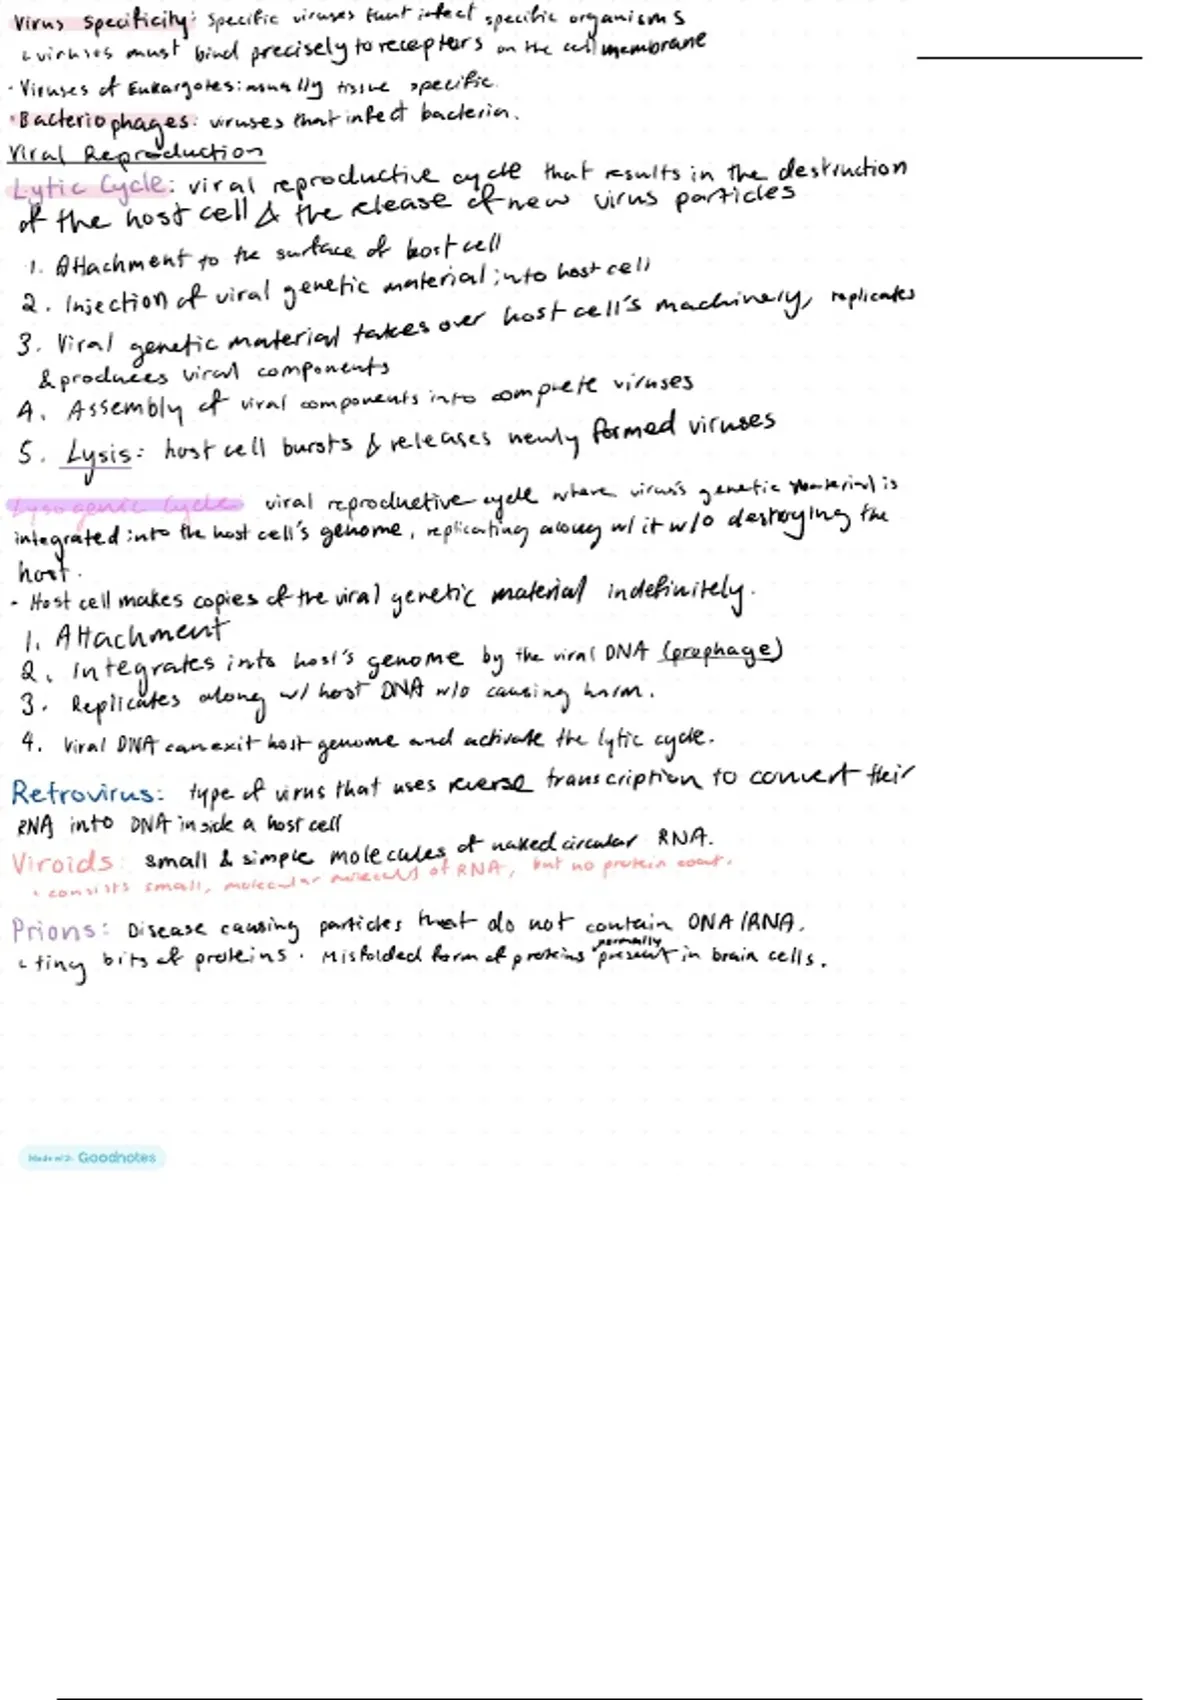 Virus Specificity: Specific viruses that infect specific organisms
↳ viruses must bind precisely to receptors on the cell membrane
· Viruses of Eukaryotes: usually tissue specific.
· Bacteriophages: viruses that infect bacteria.
Viral Reproduction
Lytic Cycle: viral reproductive cycle that results in the destruction
of the host cell & the release of new virus particles
1. Attachment to the surface of host cell
2. Injection of viral genetic material into host cell
3. Viral genetic material takes over host cell's machinery, replicates
& produces viral components
4. Assembly of viral components into complete viruses
5. Lysis: host cell bursts & releases newly formed viruses
Lysogenic Cycle: viral reproductive cycle where virus's genetic material is
integrated into the host cell's genome, replicating along w/ it w/o destroying the
host.
· Host cell makes copies of the viral genetic material indefinitely.
1. Attachment
2. Integrates into host's genome by the viral DNA (prophage)
3. Replicates along w/ host DNA w/o causing harm.
4. Viral DNA can exit host genome and activate the lytic cycle.
Retrovirus: type of virus that uses reverse transcription to convert their
RNA into DNA inside a host cell
Viroids: small & simple molecules of naked circular RNA.
· consists small, molecular molecules of RNA, but no protein coat.
Prions: Disease causing particles that do not contain DNA/RNA.
↳ tiny bits of proteins. Misfolded form of proteins normally present in brain cells.
Goodnotes